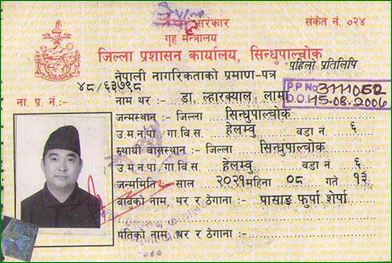 सरकार
संकेत नं. ०२४
गृह मन्त्रालय
जिल्ला प्रशासन कार्यालय, सिन्धुपाल्चोक
पहिलो प्रतिलिपि
नेपाली नागरिकताको प्रमाण-पत्र
ना. प्र. नं.:- ४८/६३७१८
PP No 3111052
D.O. 15-08-2006
नाम थर :- डा. ल्हारक्याल लामा
जन्मस्थान :- जिल्ला सिन्धुपाल्चोक
उ.म.न.पा./गा.वि.स. हेलम्बु वडा नं. ६
स्थायी बासस्थान :- जिल्ला सिन्धुपाल्चोक
उ.म.न.पा./गा.वि.स. हेलम्बु वडा नं. ६
जन्ममिति :- साल २०२१ महिना ०८ गते १३
बाबुको नाम, थर र ठेगाना :- पासाङ फुर्पा शेर्पा
पतिको नाम, थर र ठेगाना :-